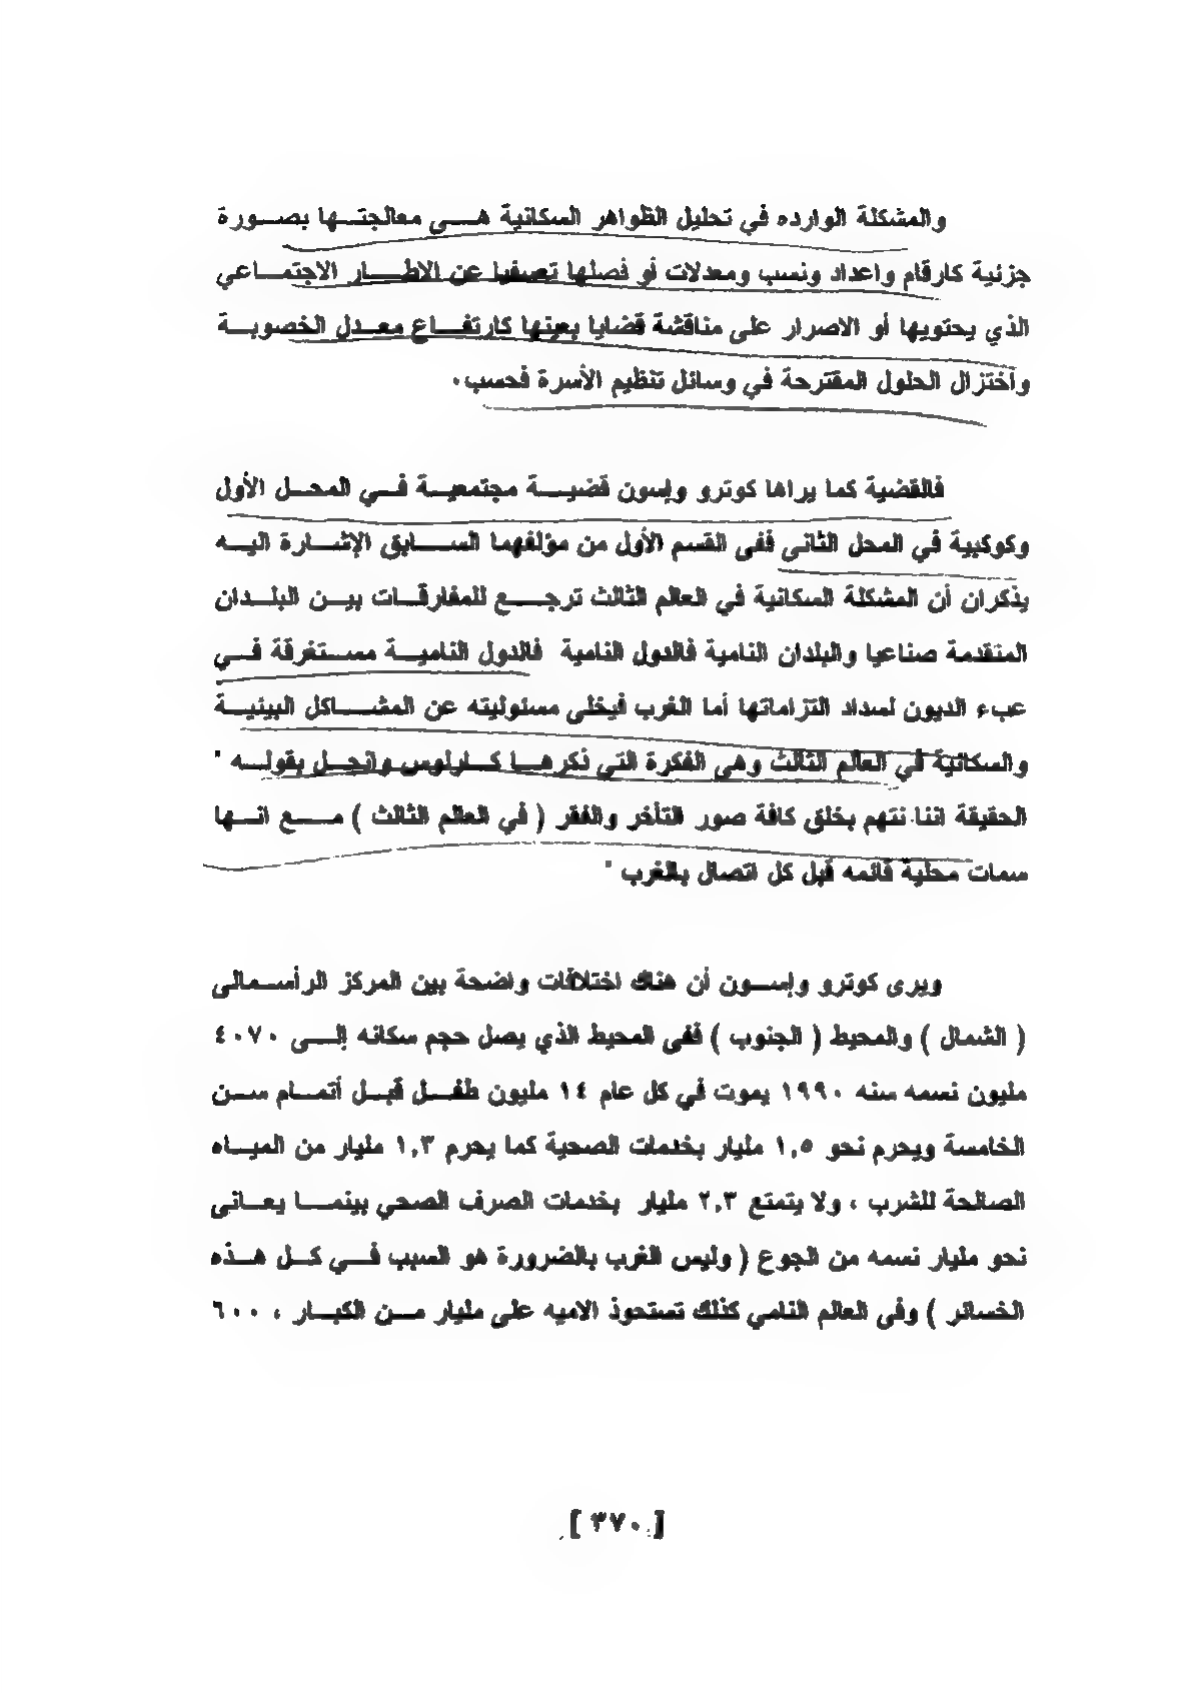 والمشكلة الوارده في تحليل الظواهر السكانية هى معالجتها بصورة
جزئية كارقام واعداد ونسب ومعدلات أو فصلها تعسفيا عن الاطار الاجتماعي
الذي يحتويها أو الاصرار على مناقشة قضايا بعينها كارتفاع معدل الخصوبة
واختزال الحلول المقترحة في وسائل تنظيم الأسرة فحسب.
فالقضية كما يراها كوترو وإسون قضية مجتمعية في المحل الأول
وكوكبية في المحل الثانى ففى القسم الأول من مؤلفهما السابق الإشارة اليه
يذكران أن المشكلة السكانية في العالم الثالث ترجع للمفارقات بين البلدان
المتقدمة صناعيا والبلدان النامية فالدول النامية فالدول النامية مستغرقة في
عبء الديون لسداد التزاماتها أما الغرب فيخلى مسئوليته عن المشاكل البيئية
والسكانية في العالم الثالث وهى الفكرة التي ذكرها كارلوس وانجل بقوله "
الحقيقة اننا نتهم بخلق كافة صور التأخر والفقر ( في العالم الثالث ) مع انها
سمات محلية قائمه قبل كل اتصال بالغرب "
ويرى كوترو وإسون أن هناك اختلافات واضحة بين المركز الرأسمالى
( الشمال ) والمحيط ( الجنوب ) ففى المحيط الذي يصل حجم سكانه إلى ٤٠٧٠
مليون نسمه سنه ١٩٩٠ يموت في كل عام ١٤ مليون طفل قبل أتمام سن
الخامسة ويحرم نحو ١,٥ مليار بخدمات الصحية كما يحرم ١,٣ مليار من المياه
الصالحة للشرب ، ولا يتمتع ٢,٣ مليار بخدمات الصرف الصحي بينما يعانى
نحو مليار نسمه من الجوع ( وليس الغرب بالضرورة هو السبب في كل هذه
الخسائر ) وفى العالم النامي كذلك تستحوذ الاميه على مليار من الكبار ، ٦٠٠
[ ٣٧٠ ]